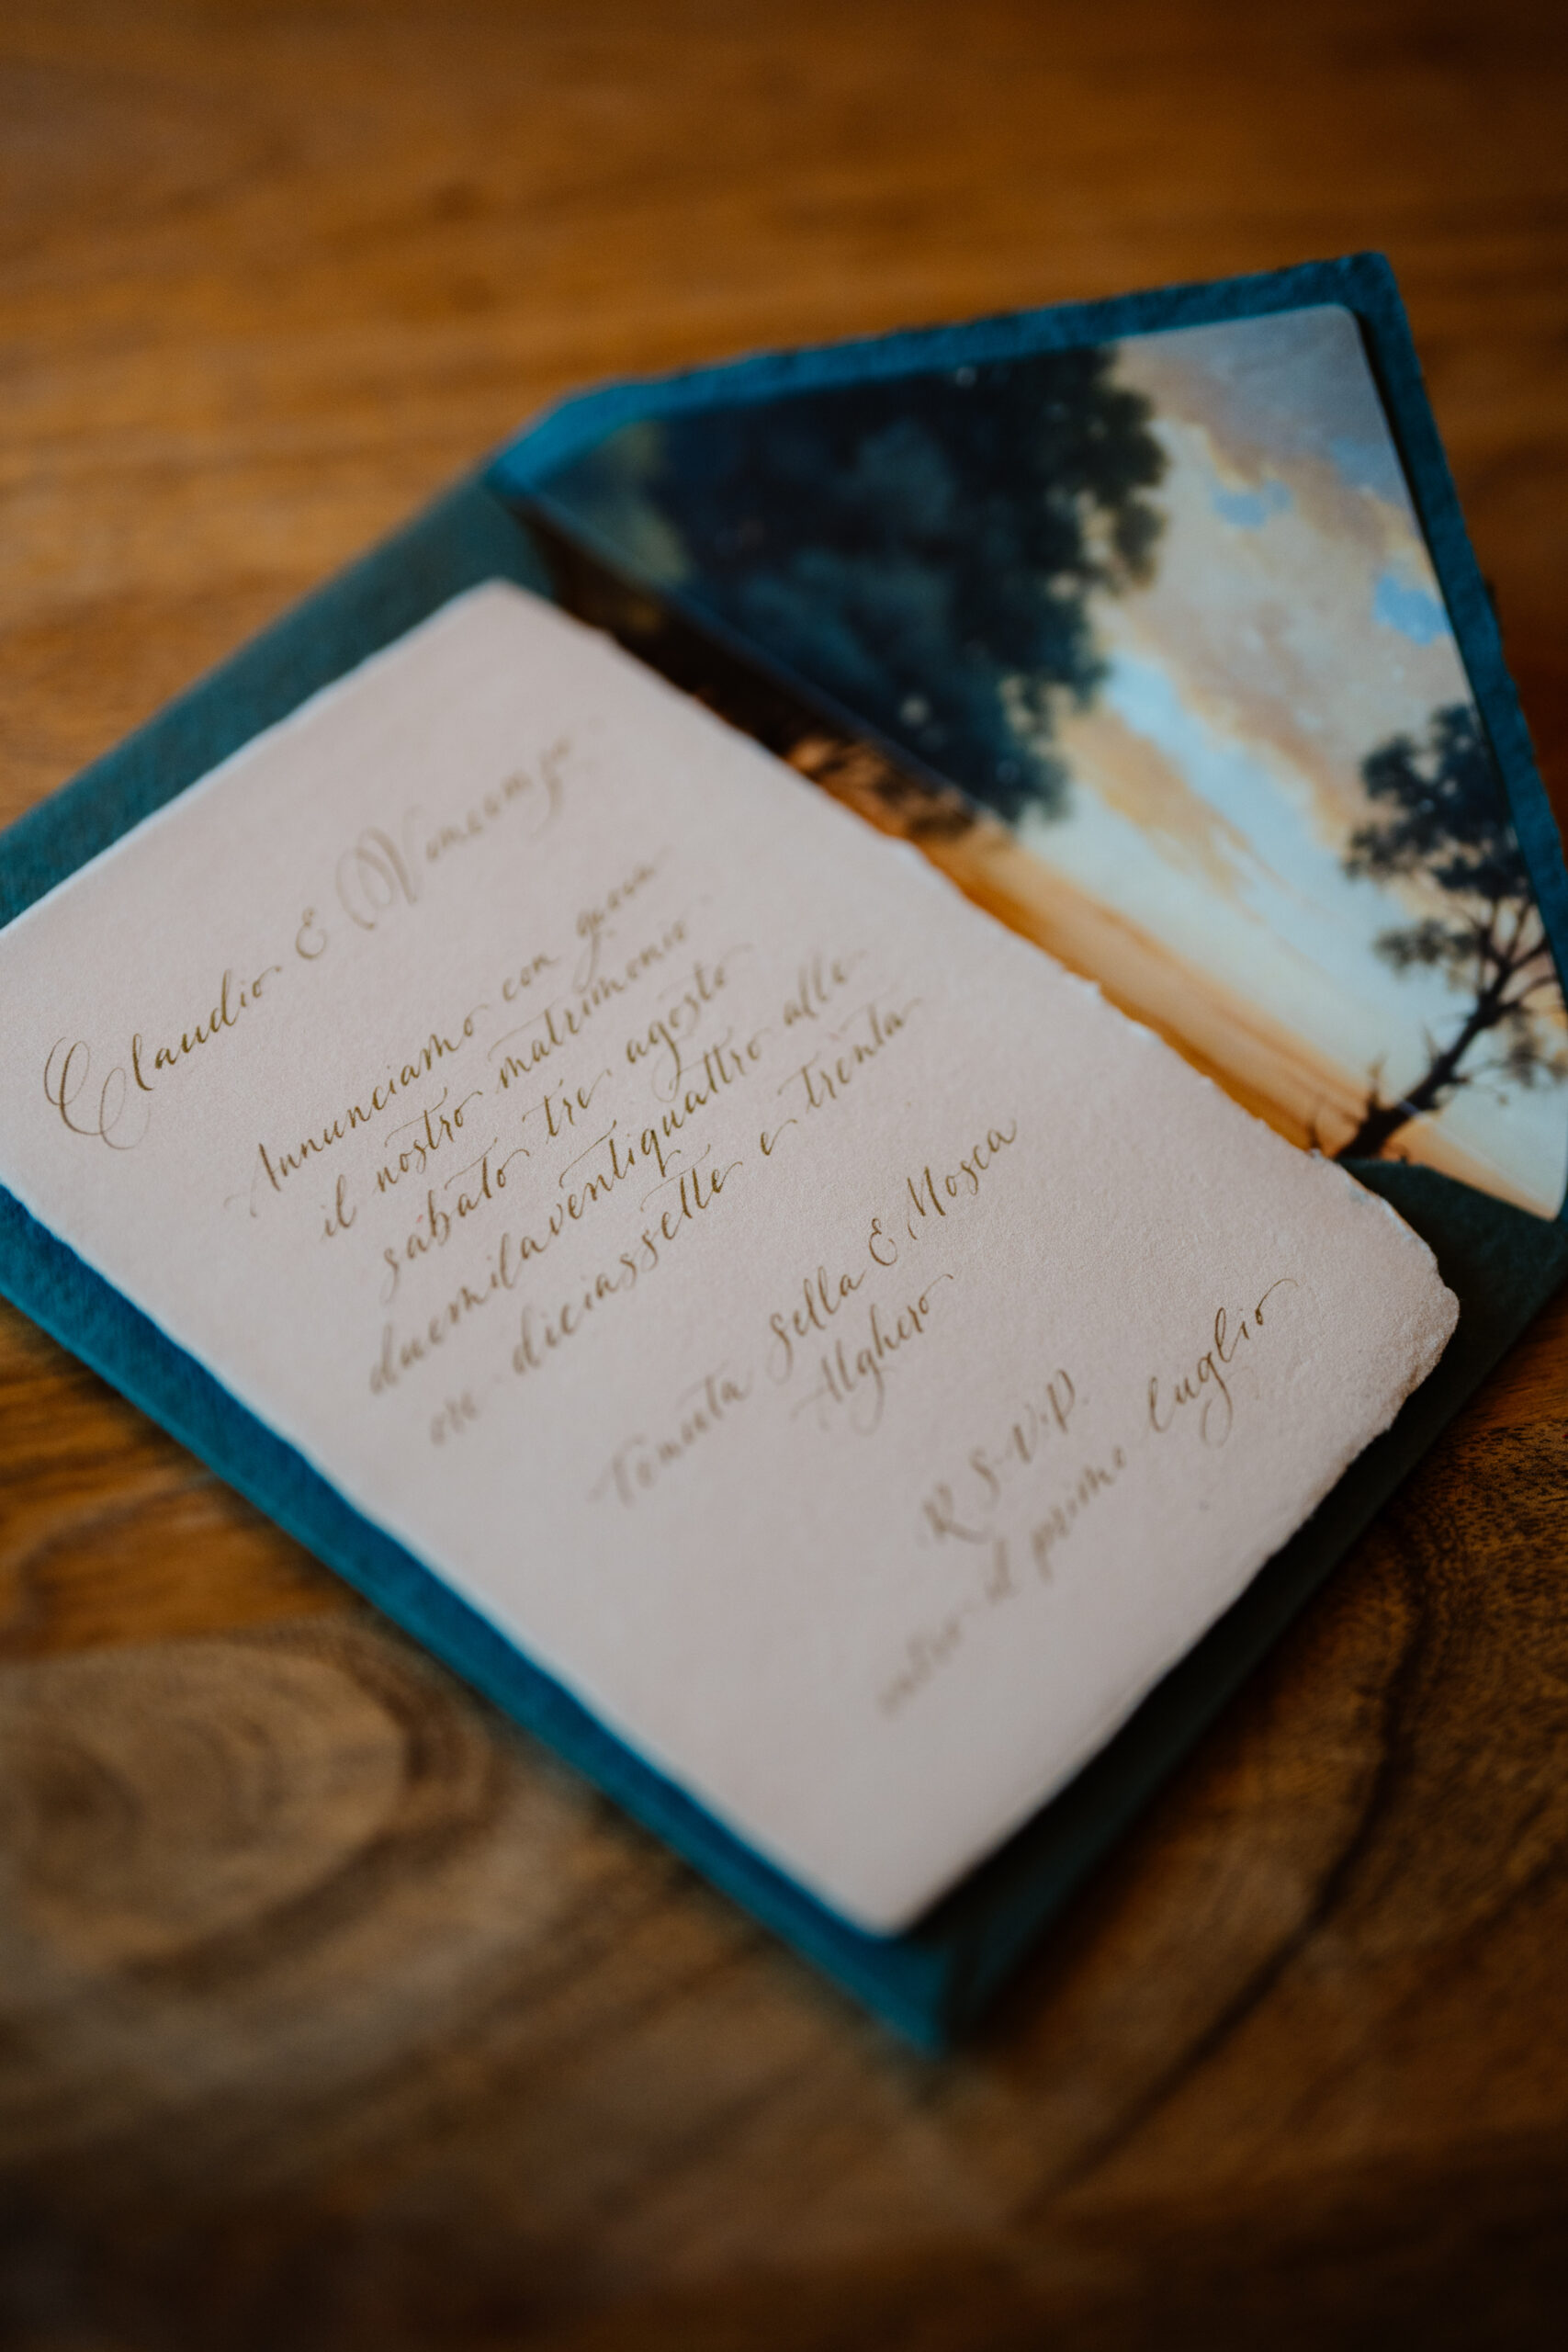 Claudio E
Annunciamo con gioia
il nostro matrimonio
sabato tre agosto
duemilaventiquattro alle
ore diciassette e trenta
Tenuta Sella E Mosca
Alghero
R.S.V.P.
entro il primo luglio